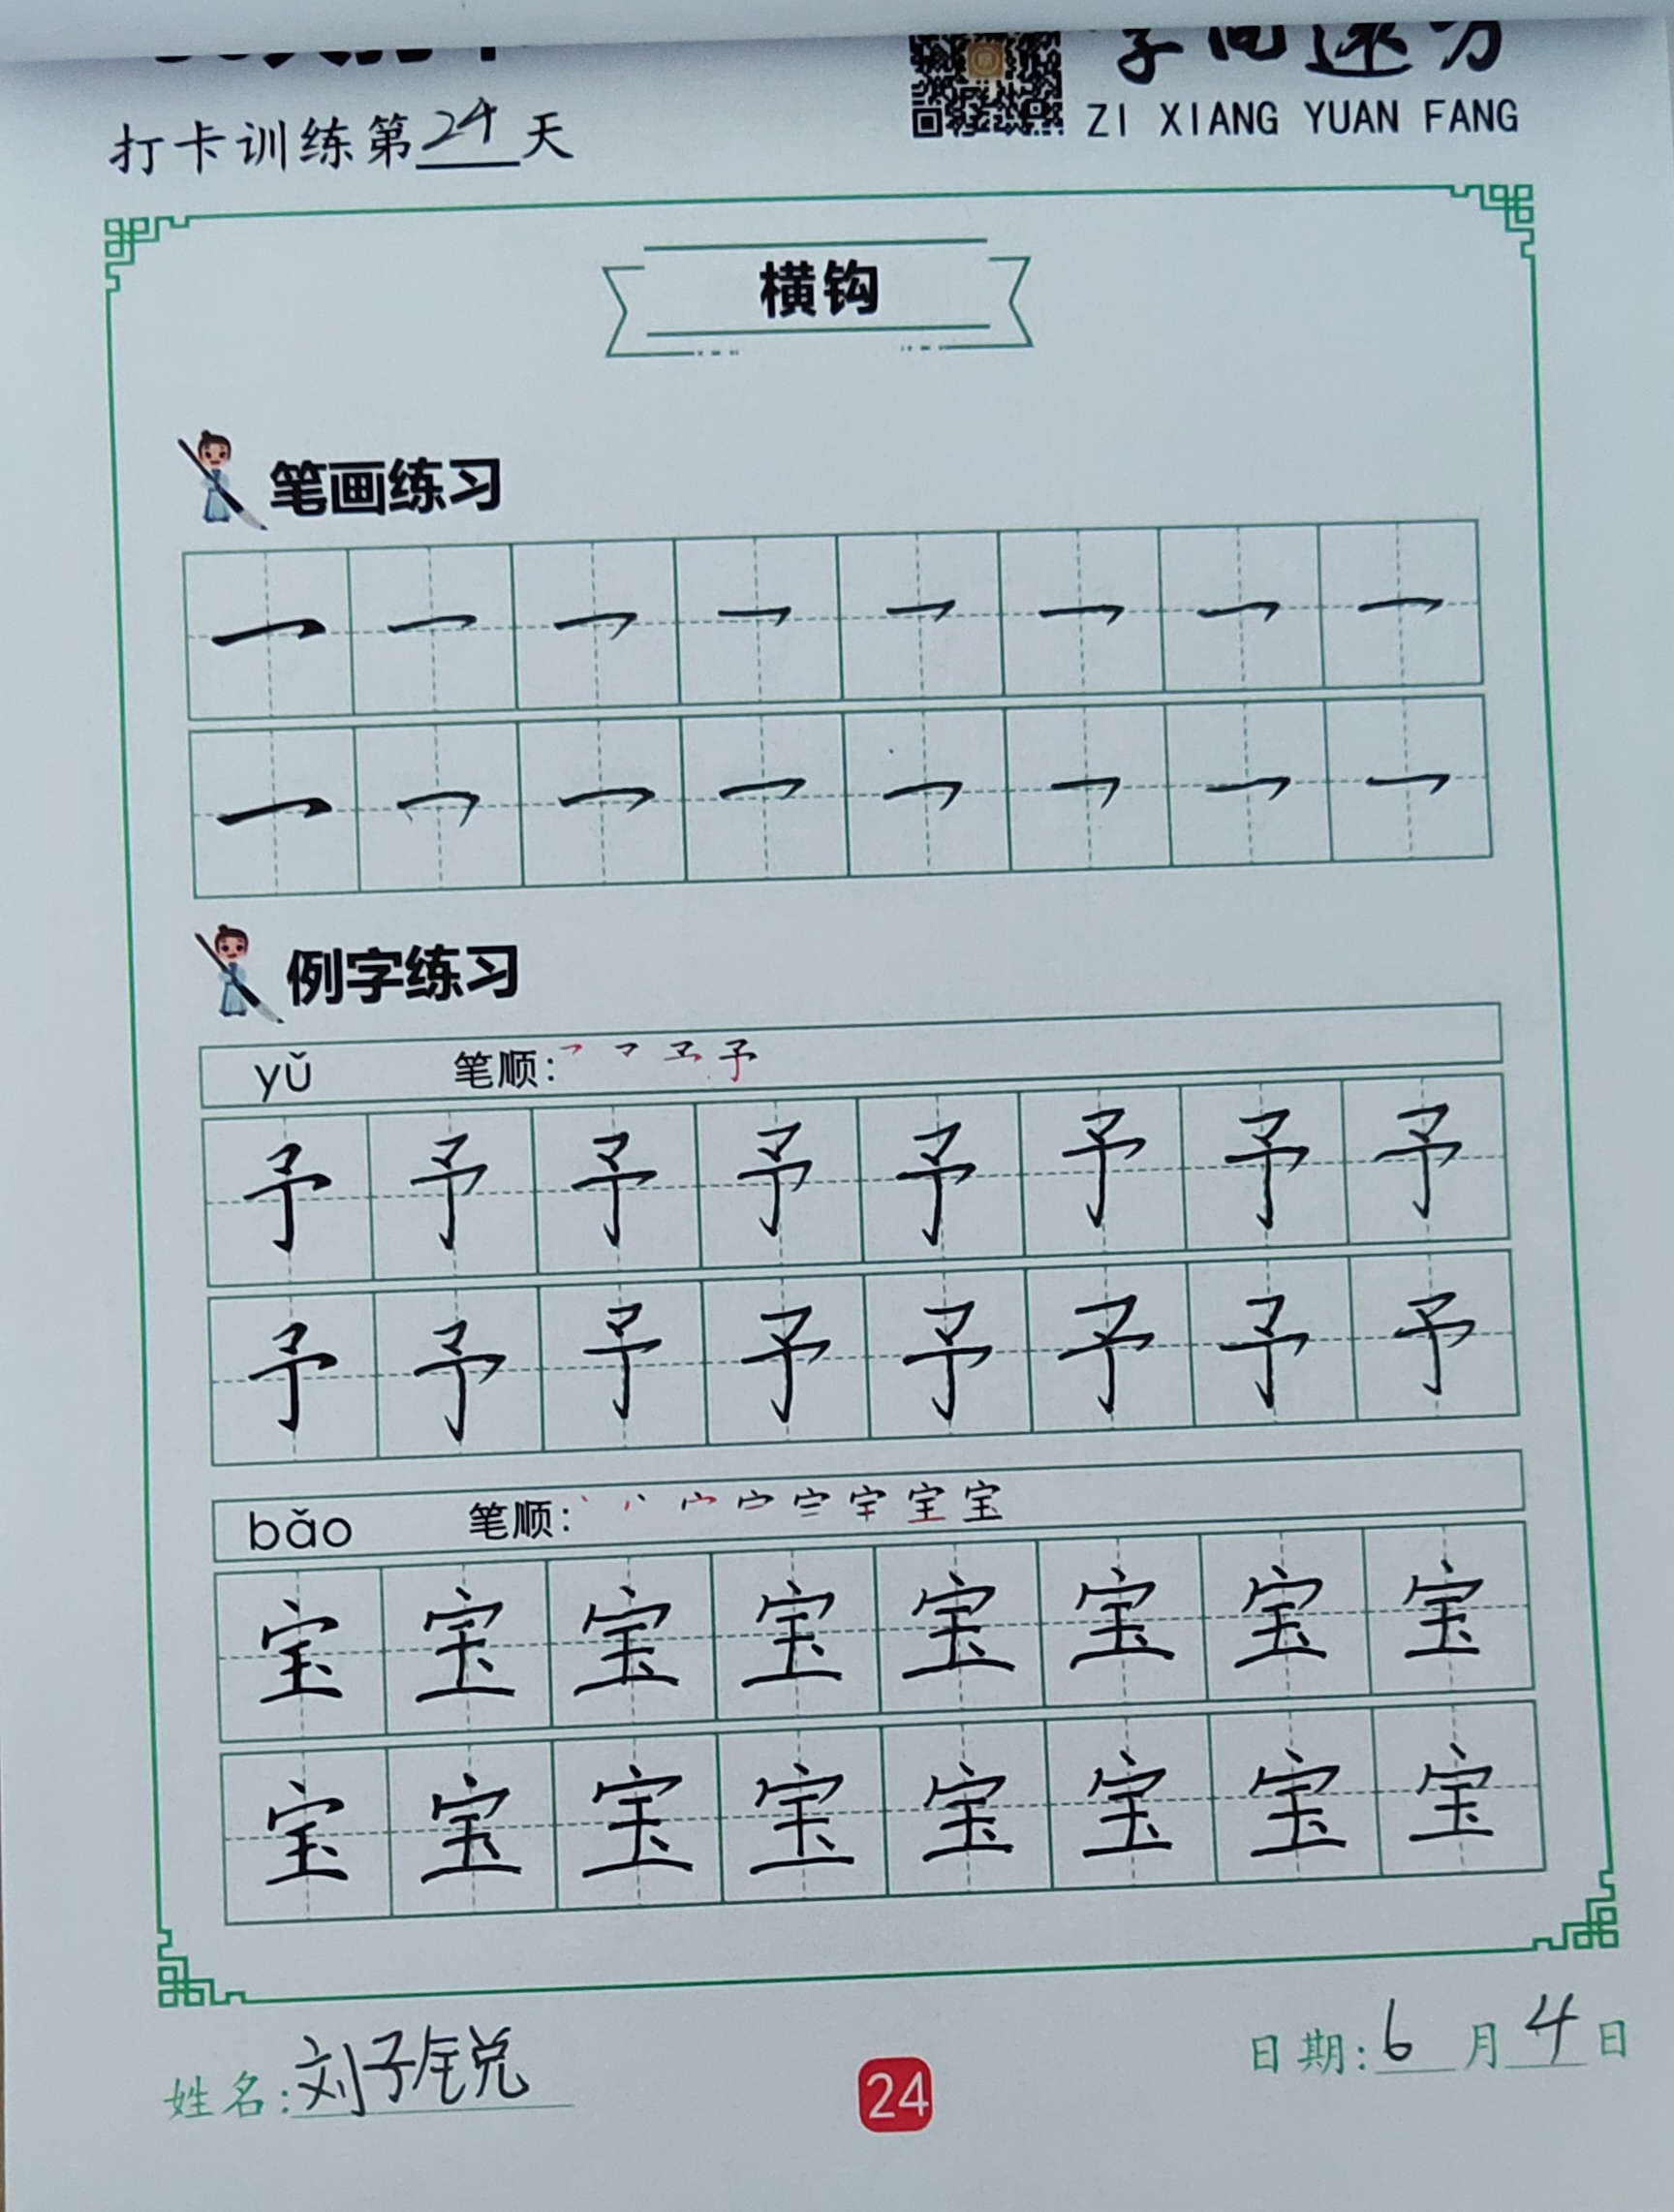 ZI XIANG YUAN FANG
打卡训练第24天
横钩
笔画练习
例字练习
yǔ 笔顺:
予 予 予 予 予 予 予 予
予 予 予 予 予 予 予 予
bǎo 笔顺:
宝 宝 宝 宝 宝 宝 宝 宝
宝 宝 宝 宝 宝 宝 宝 宝
姓名:刘子锐
日期:6月4日
24